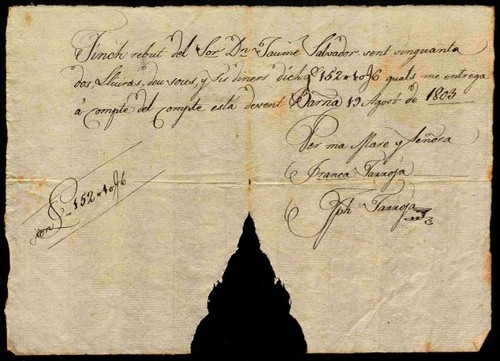 Tinch rebut del Sor Dn Jaume Salvador sent sinquanta
dos, Lliuras, deu sous, y sis diners dich ₤ 152 10 6 quals me entrega
á compte del compte está devent Barna 19 Agost de 1803
Per ma Mare y Señora
Franca Tarroja
Jph Tarroja
son ₤ 152 10 6